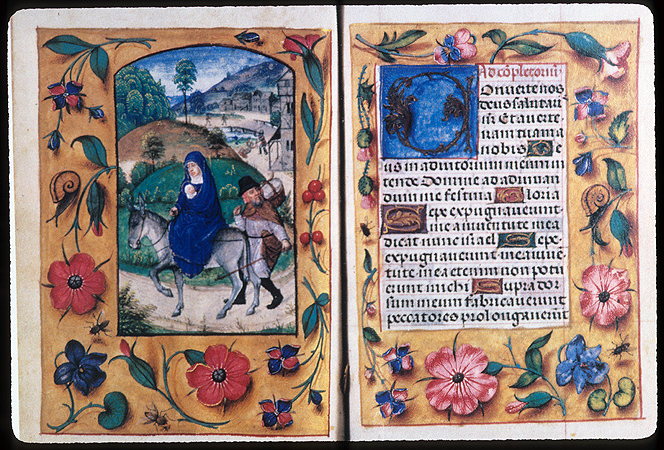 Ad cōpletoriū
Onuerte nos
deus salutaris
Et auerte
iram tuam a
nobis De
us in adiutorium meum in
tende Domine ad adiuuan
dum me festina Gloria
Sepe expugnauerunt
me a iuuentute mea
dicat nunc israel Sepe
expugnauerunt me a iuuen
tute mea etenim non potu
erunt michi Supra dor
sum meum fabricauerunt
peccatores prolongauerūt